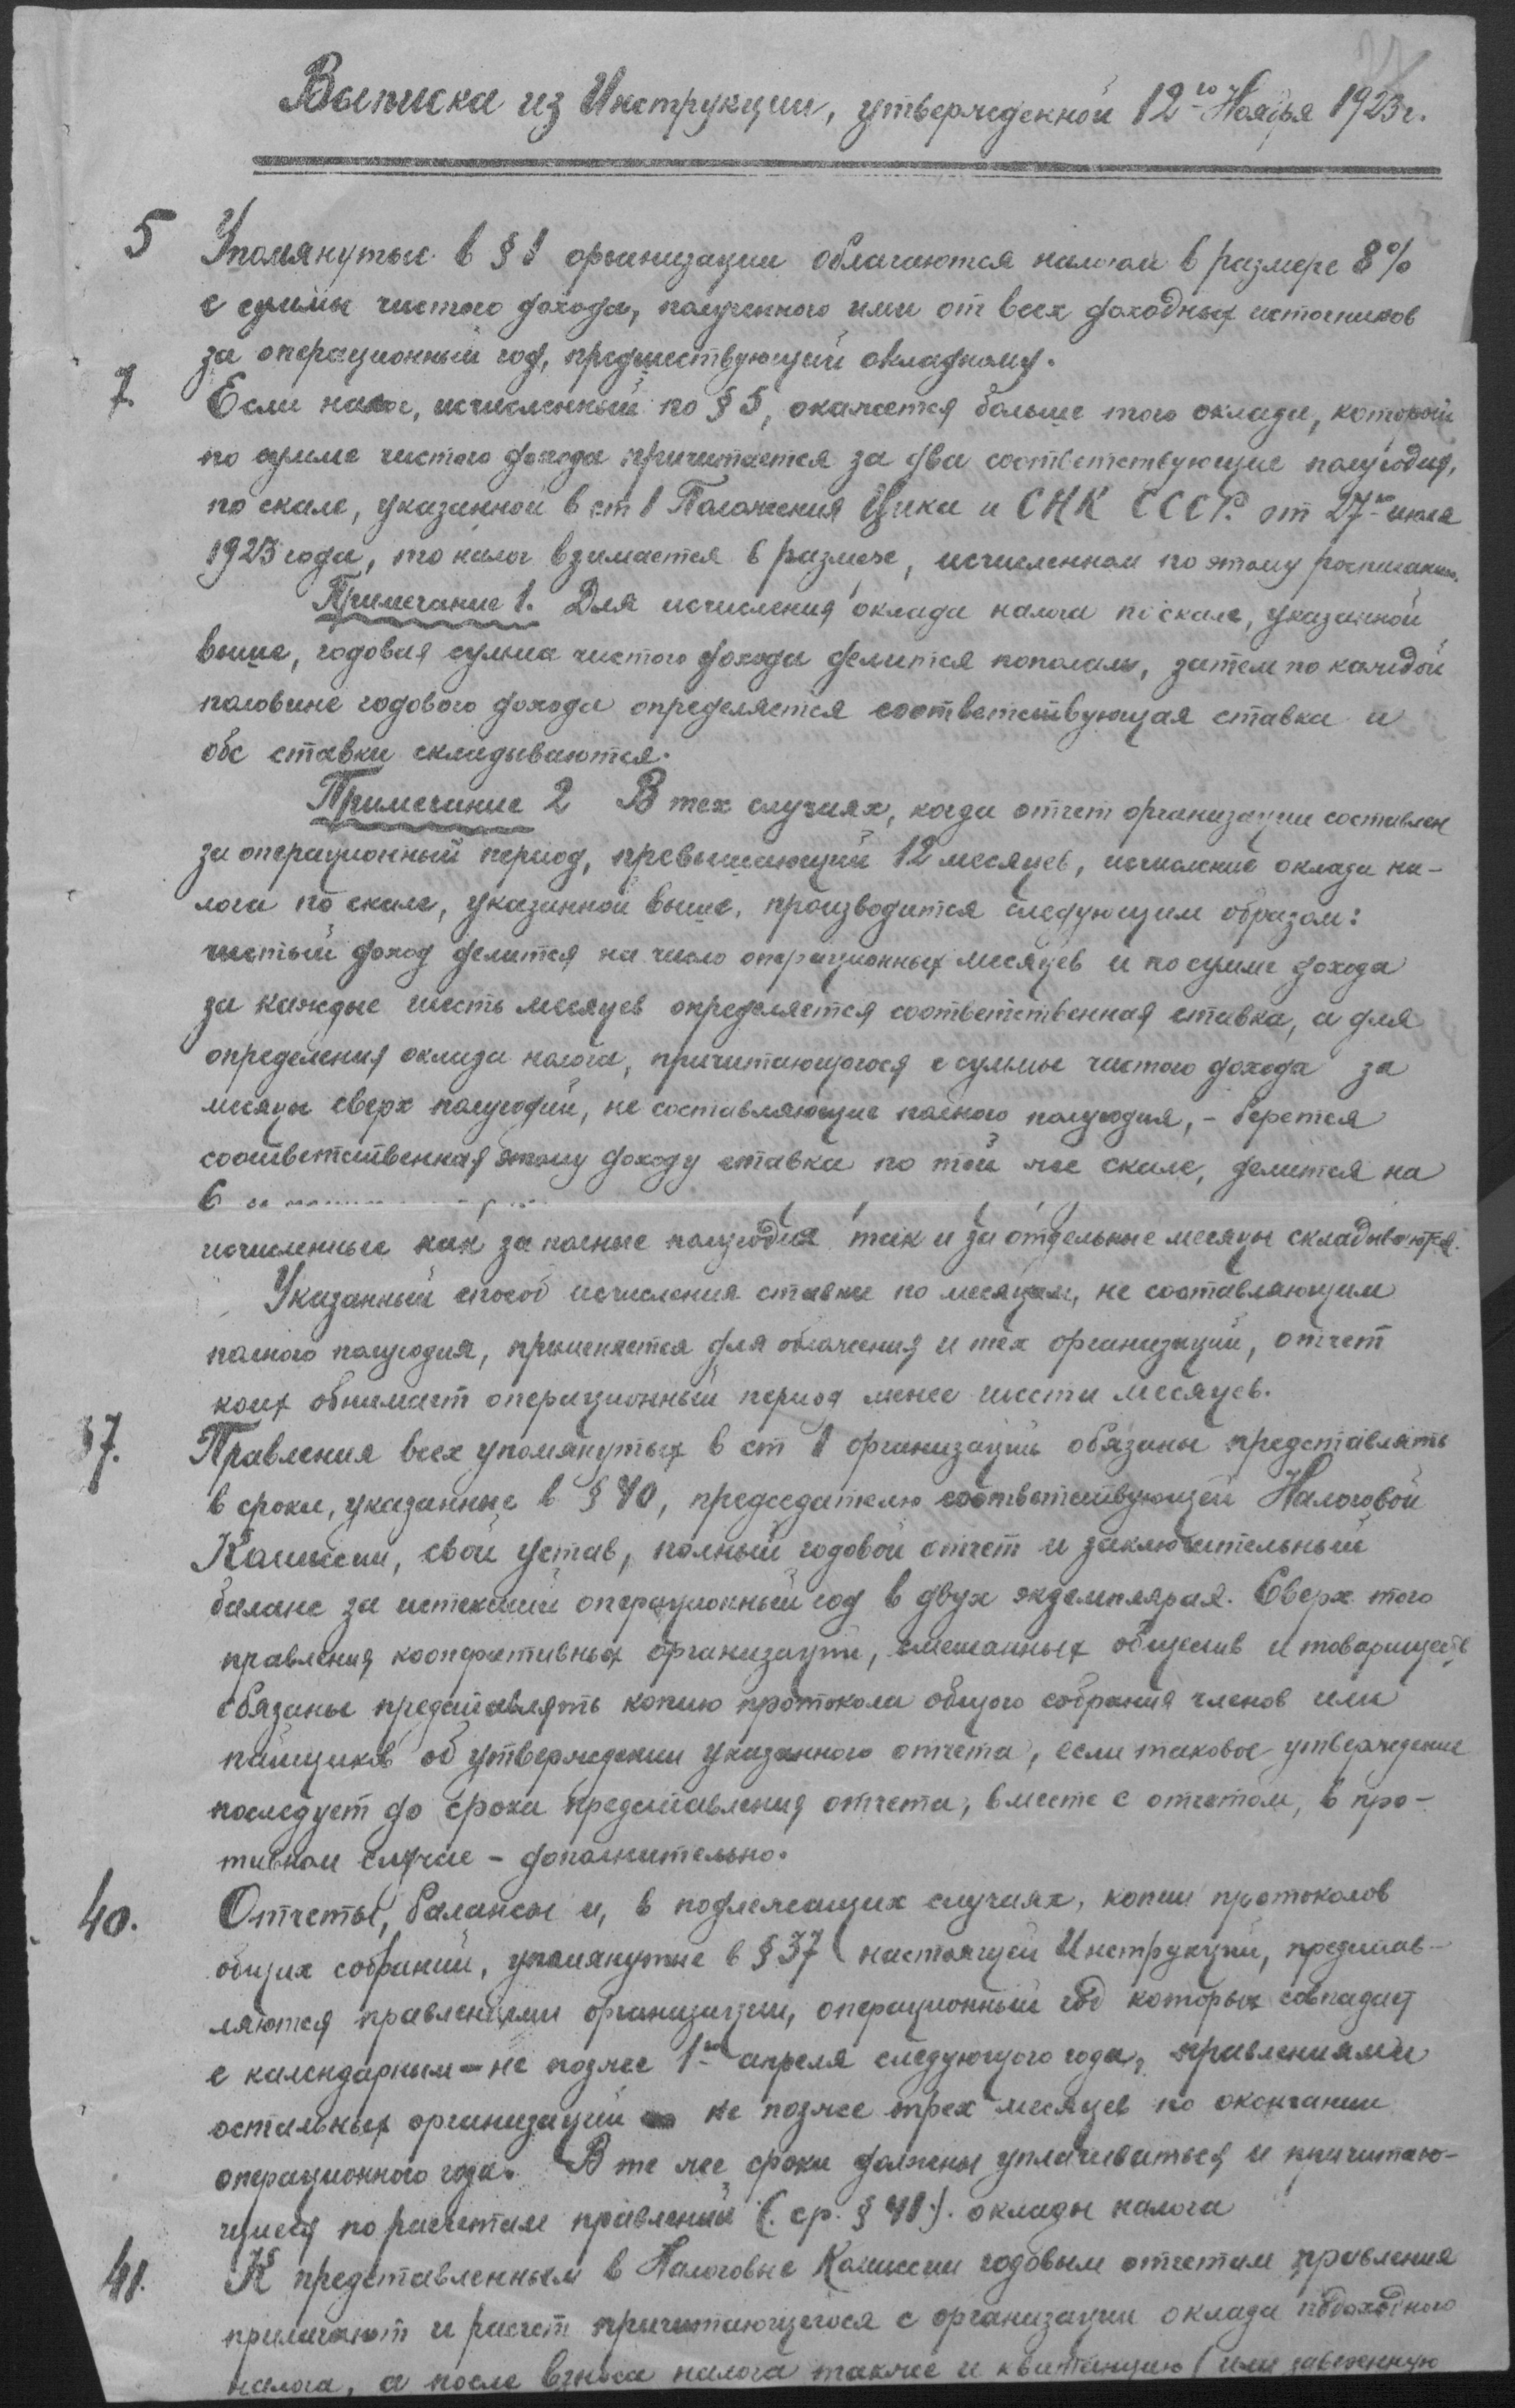 Выписка из Инструкции, утвержденной 12го Ноября 1923г.
5 Упомянутые в § 1 организации облагаются налогом в размере 8%
с суммы чистого дохода, полученного ими от всех доходных источников
за операционный год, предшествующий окладному.
7. Если налог, исчисленный по § 5, окажется больше того оклада, который
по сумме чистого дохода причитается за два соответствующие полугодия,
по скале, указанной в ст 1 Положения Цика и СНК СССР. от 27го июля
1923 года, то налог взимается в размере, исчисленном по этому расписанию.
Примечание 1. Для исчисления оклада налога по скале, указанной
выше, годовая сумма чистого дохода делится пополам, затем по каждой
половине годового дохода определяется соответствующая ставка и
обе ставки складываются.
Примечание 2 В тех случаях, когда отчет организации составлен
за операционный период, превышающий 12 месяцев, исчисление оклада на-
лога по скале, указанной выше, производится следующим образом:
чистый доход делится на число операционных месяцев и по сумме дохода
за каждые шесть месяцев определяется соответственная ставка, а для
определения оклада налога, причитающегося с суммы чистого дохода за
месяцы сверх полугодий, не составляющие полного полугодия, – берется
соответственная этому доходу ставка по той же скале, делится на
6
исчисленные как за полные полугодия так и за отдельные месяцы складываются.
Указанный способ исчисления ставки по месяцам, не составляющим
полного полугодия, применяется для обложения и тех организаций, отчет
коих обнимает операционный период менее шести месяцев.
37. Правления всех упомянутых в ст 1 организаций обязаны представлять
в сроки, указанные в § 40, председателю соответствующей Налоговой
Комиссии, свой устав, полный годовой отчет и заключительный
баланс за истекший операционный год в двух экземплярах. Сверх того
правления кооперативных организаций, смешанных обществ и товариществ
обязаны представлять копию протокола общего собрания членов или
пайщиков об утверждении указанного отчета, если таковое утверждение
последует до срока представления отчета, вместе с отчетом, в про-
тивном случае – дополнительно.
40. Отчеты, балансы и, в подлежащих случаях, копии протоколов
общих собраний, упомянутые в § 37 настоящей Инструкции, представ-
ляются правлениями организации, операционный год которых совпадает
с календарным – не позже 1го апреля следующего года, правлениями
остальных организаций не позже трех месяцев по окончании
операционного года. В те же сроки должны уплачиваться и причитаю-
щиеся по расчетам правлений (. ср. § 41.). оклады налога
41. К представленным в Налоговые Комиссии годовым отчетам правления
прилагают и расчет причитающегося с организации оклада подоходного
налога, а после взноса налога также и квитанцию (или заверенную